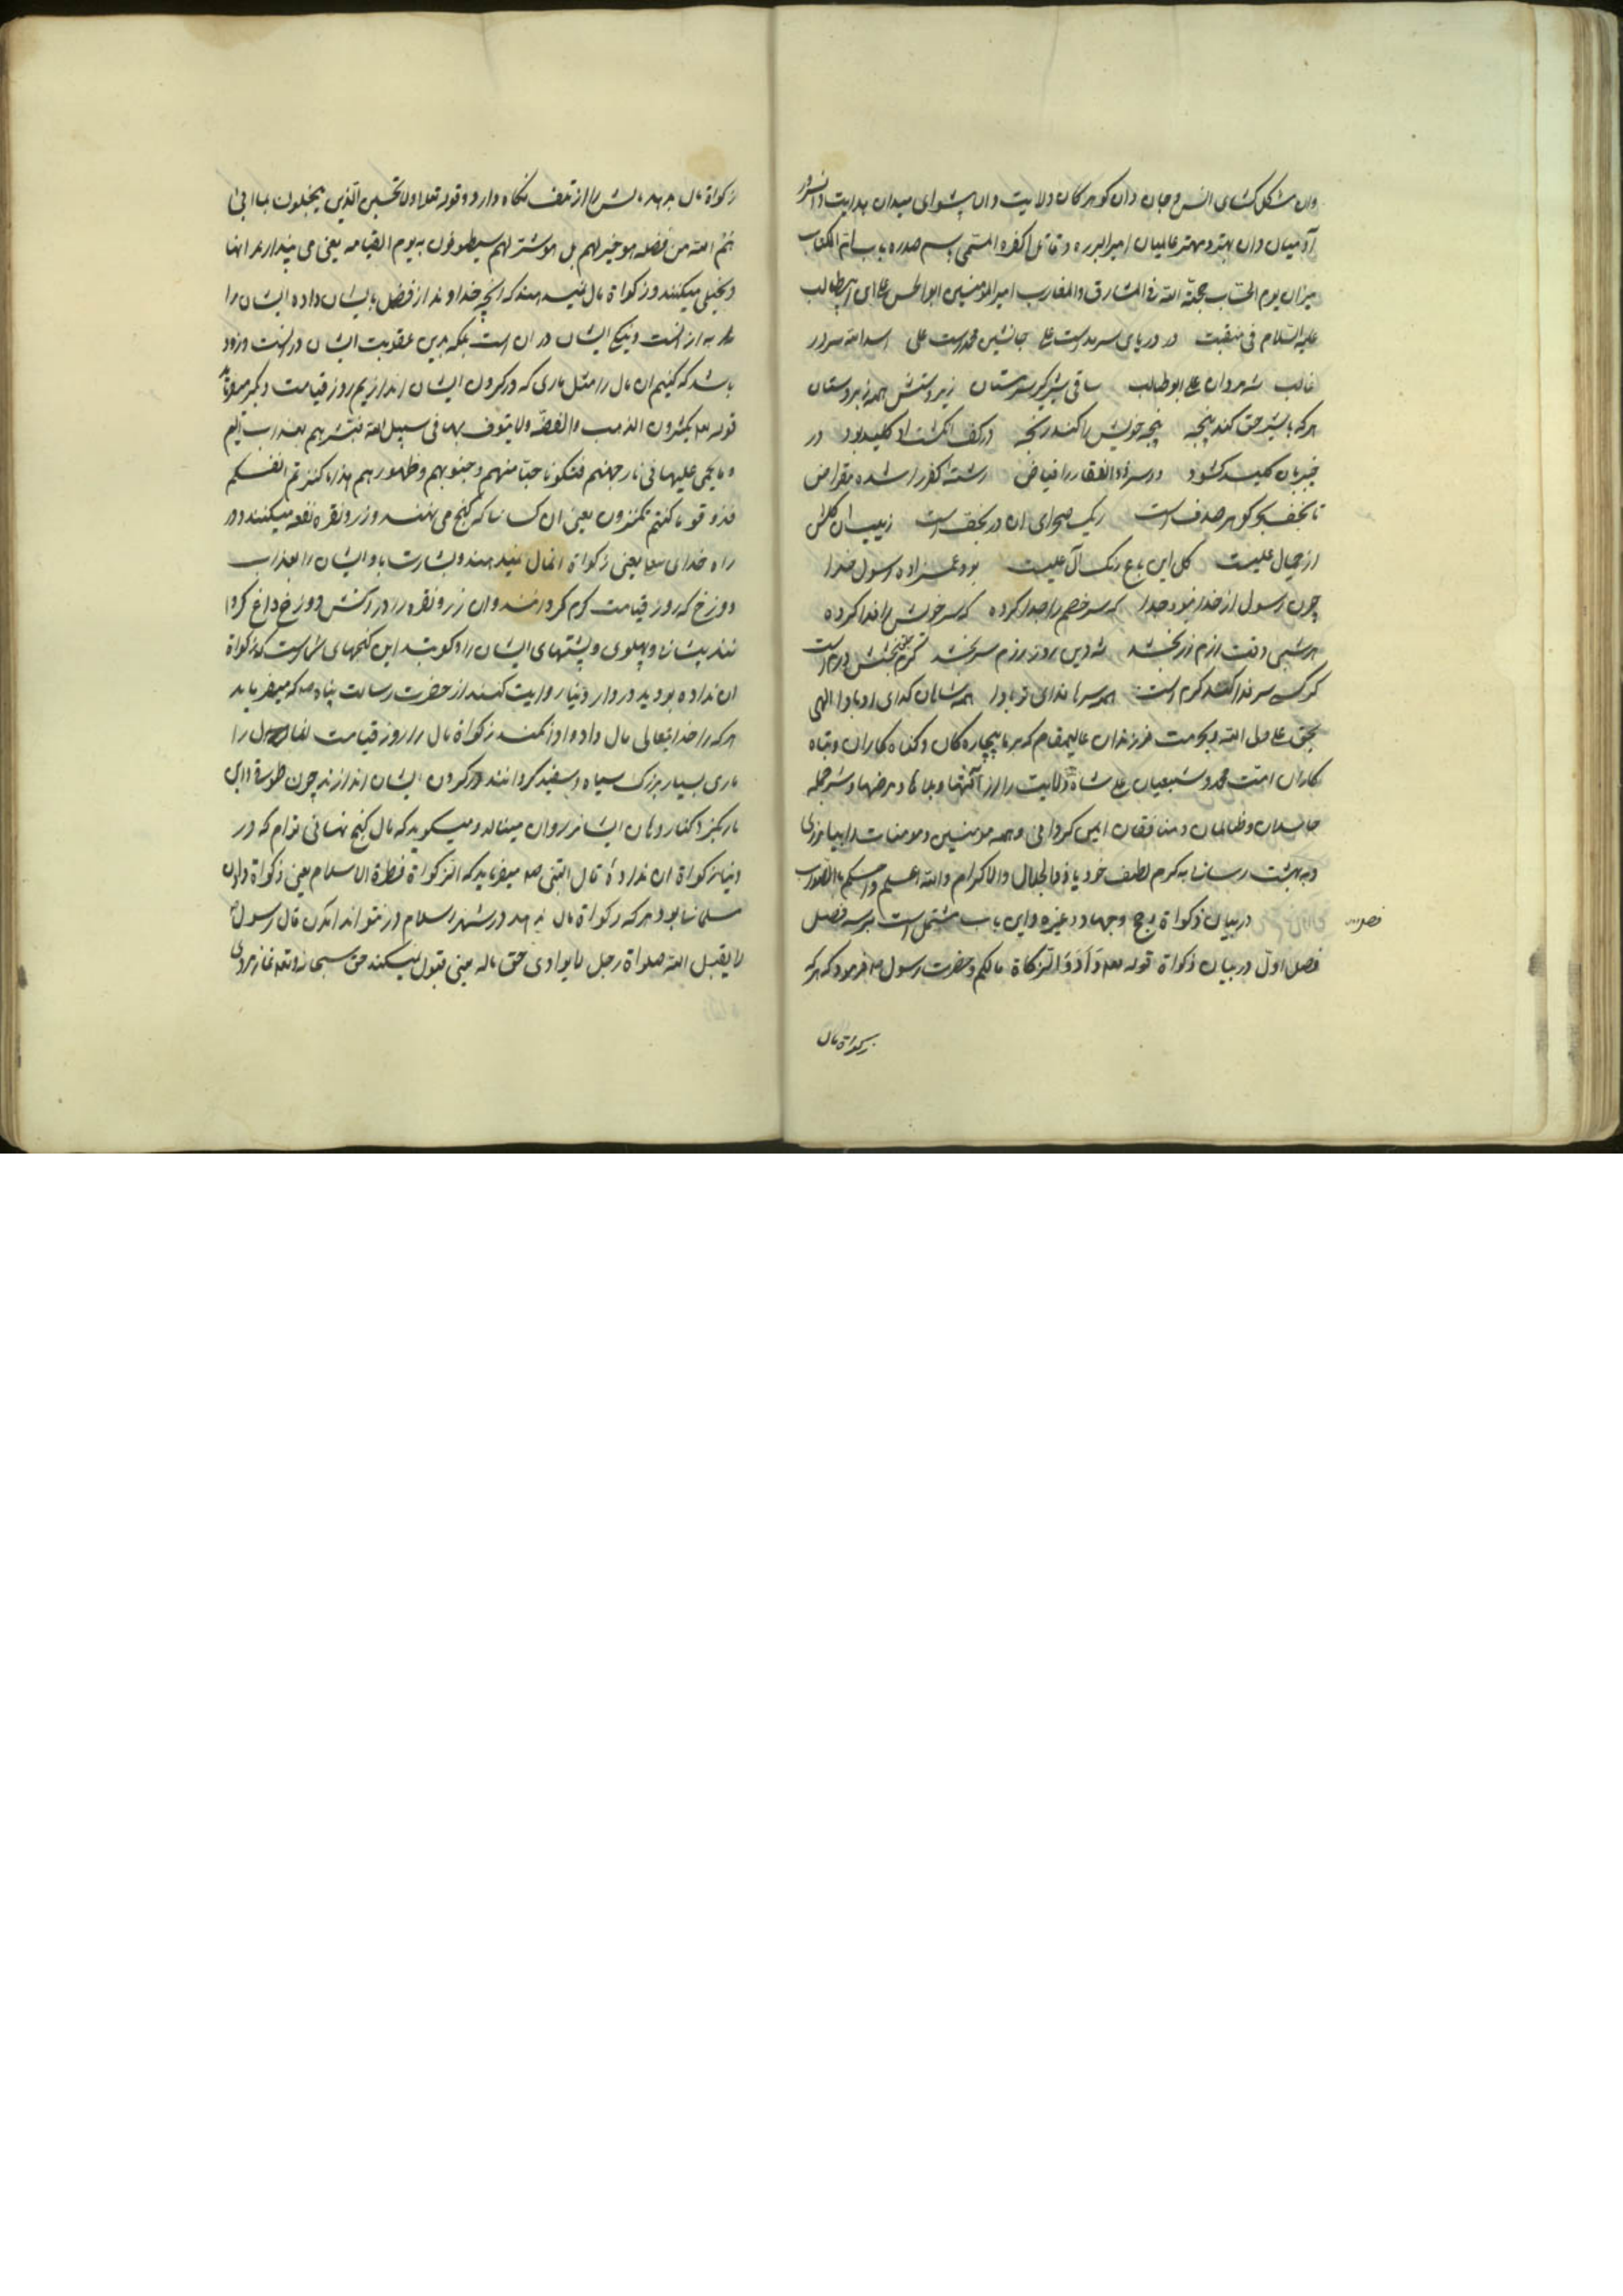 وان مشکل کشای انس و جان وان کوهر کان ولایت وان پیشوای میدان هدایت وان سرور
آدمیان وان بهتر و مهتر عالمیان امیرالبرره و قاتل الکفره المسمی باسم صدره باب ام الکتاب
میزان یوم الحساب حجة الله فی المشارق والمغارب امیرالمؤمنین ابوالحسن علی ابن ابیطالب
علیه السلام فی منقبت در دریای سرمدست علی جانشین محمدست علی اسدالله سرور
غالب شه مردان علی ابوطالب ساقی شیرکیر سرمستان زیردستش همه زبردستان
هرکه با شیر حق کند پنجه پنجه خویش را کند رنجه در کف انکشت او کلید بود در
خیبر بان کلید کشود دو سر ذوالفقار را فیاض رشته کفر را شده مقراض
تا نجف کوهر صدف است ریک صحرای ان در نجف است زیب ان کلشن
از جمال علیست کل این باغ رنک آل علیست بود عمزاده رسول خدا
چون رسول از خدا نبود جدا که سر خصم را جدا کرده که سر خویش را فدا کرده
هر شبی وقت ازم زر بخشد شه دین روز رزم سر بخشد کرم بخشش درم است
کرکسی سر فدا کند کرم است همه سرها فدای او بادا همه شاهان کدای او بادا الهی
بحق علی ولی الله و بحرمت فرزندان عالیمقام که هر ما بیچاره کان و کناه کاران و تباه
کاران امت محمد و شیعیان علی شاه ولایت را از آفتها و بلاها و مرضها و شر جمله
حاسدان و ظالمان و منافقان ایمن کردانی و همه مومنین و مومنات را بیامرزی
و به بهشت رسانی به کرم لطف خود یا ذوالجلال والاکرام والله اعلم واحکم باالصواب
در بیان زکواة و حج و جهاد و غیره و این باب مشتمل است بر سه فصل
فصل اول در بیان زکواة قوله تعه وادوا الزکاة مالکم و حضرت رسول صه فرمود که هرکه
زکواة مال
زکواة مال بدهد مالش را از تلف نکاه دارد و قوله تعالی ولا تحسبن الذین یبخلون بما اتی
هم الله من فضله هو خیر لهم بل هو شر لهم سیطوقون به یوم القیامه یعنی می پندارند انها
و بخیلی میکنند و زکواة مال نمیدهند که انچه خداوند از فضل بایشان داده ایشان را
به از انست و نیکی ایشان در ان است بلکه بدین عقوبت ایشان در انست و زود
باشد که کنیم ان مال را مثل ماری که در کردن ایشان اندازیم روز قیامت و دیکر میفرماید
قوله تعه یکنزون الذهب والفضه ولا ینفقونها فی سبیل الله فبشرهم بعذاب الیم
یوم یحمی علیها فی نار جهنم فتکوی بها جباههم وجنوبهم وظهورهم هذا ما کنزتم لانفسکم
فذوقو ما کنتم تکنزون یعنی ان کسانیکه کنج می نهند و زر و نقره نفقه نمیکنند در
راه خدای تعا یعنی زکواة انمال نمیدهند و بشارت باد ایشان را بعذاب
دوزخ که روز قیامت کرم کردانند و ان زر و نقره را در آتش دوزخ داغ کردا
نند پیشانی و پهلوی و پشتهای ایشان را و کویند این کنجهای شماست که زکواة
ان نداده بودید در دار دنیا روایت کنند از حضرت رسالت پناه صه که میفرماید
هرکه را خدایتعالی مال داد و ادا نکند زکواة مال را روز قیامت ان مال را
ماری بسیار بزرک سیاه و سفید کردانند و در کردن ایشان اندازند چون طوق و ان
مار بکیرد کنار دهان ایشانرا و ان مینالد و میکوید که مال کنج نهانی توام که در
دنیا زکواة ان نداده قال النبی صه میفرماید که الزکواة فنطرة الاسلام یعنی زکواة دادن
مسلمانی بود هرکه زکواة مال ندهد در شهر اسلام در نتواند امدن قال رسول
لا یقبل الله صلواة رجل لا یوادی حق ماله یعنی قبول نمیکند حق سبحانه و تعه نماز مردی